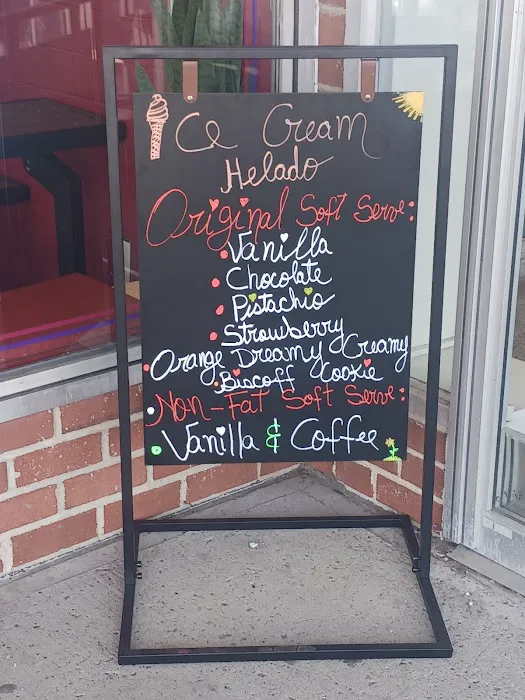 Ice Cream
Helado
Original Soft Serve:
Vanilla
Chocolate
Pistachio
Strawberry
Orange Dreamy Creamy
Biscoff Cookie
Non-Fat Soft Serve:
Vanilla & Coffee